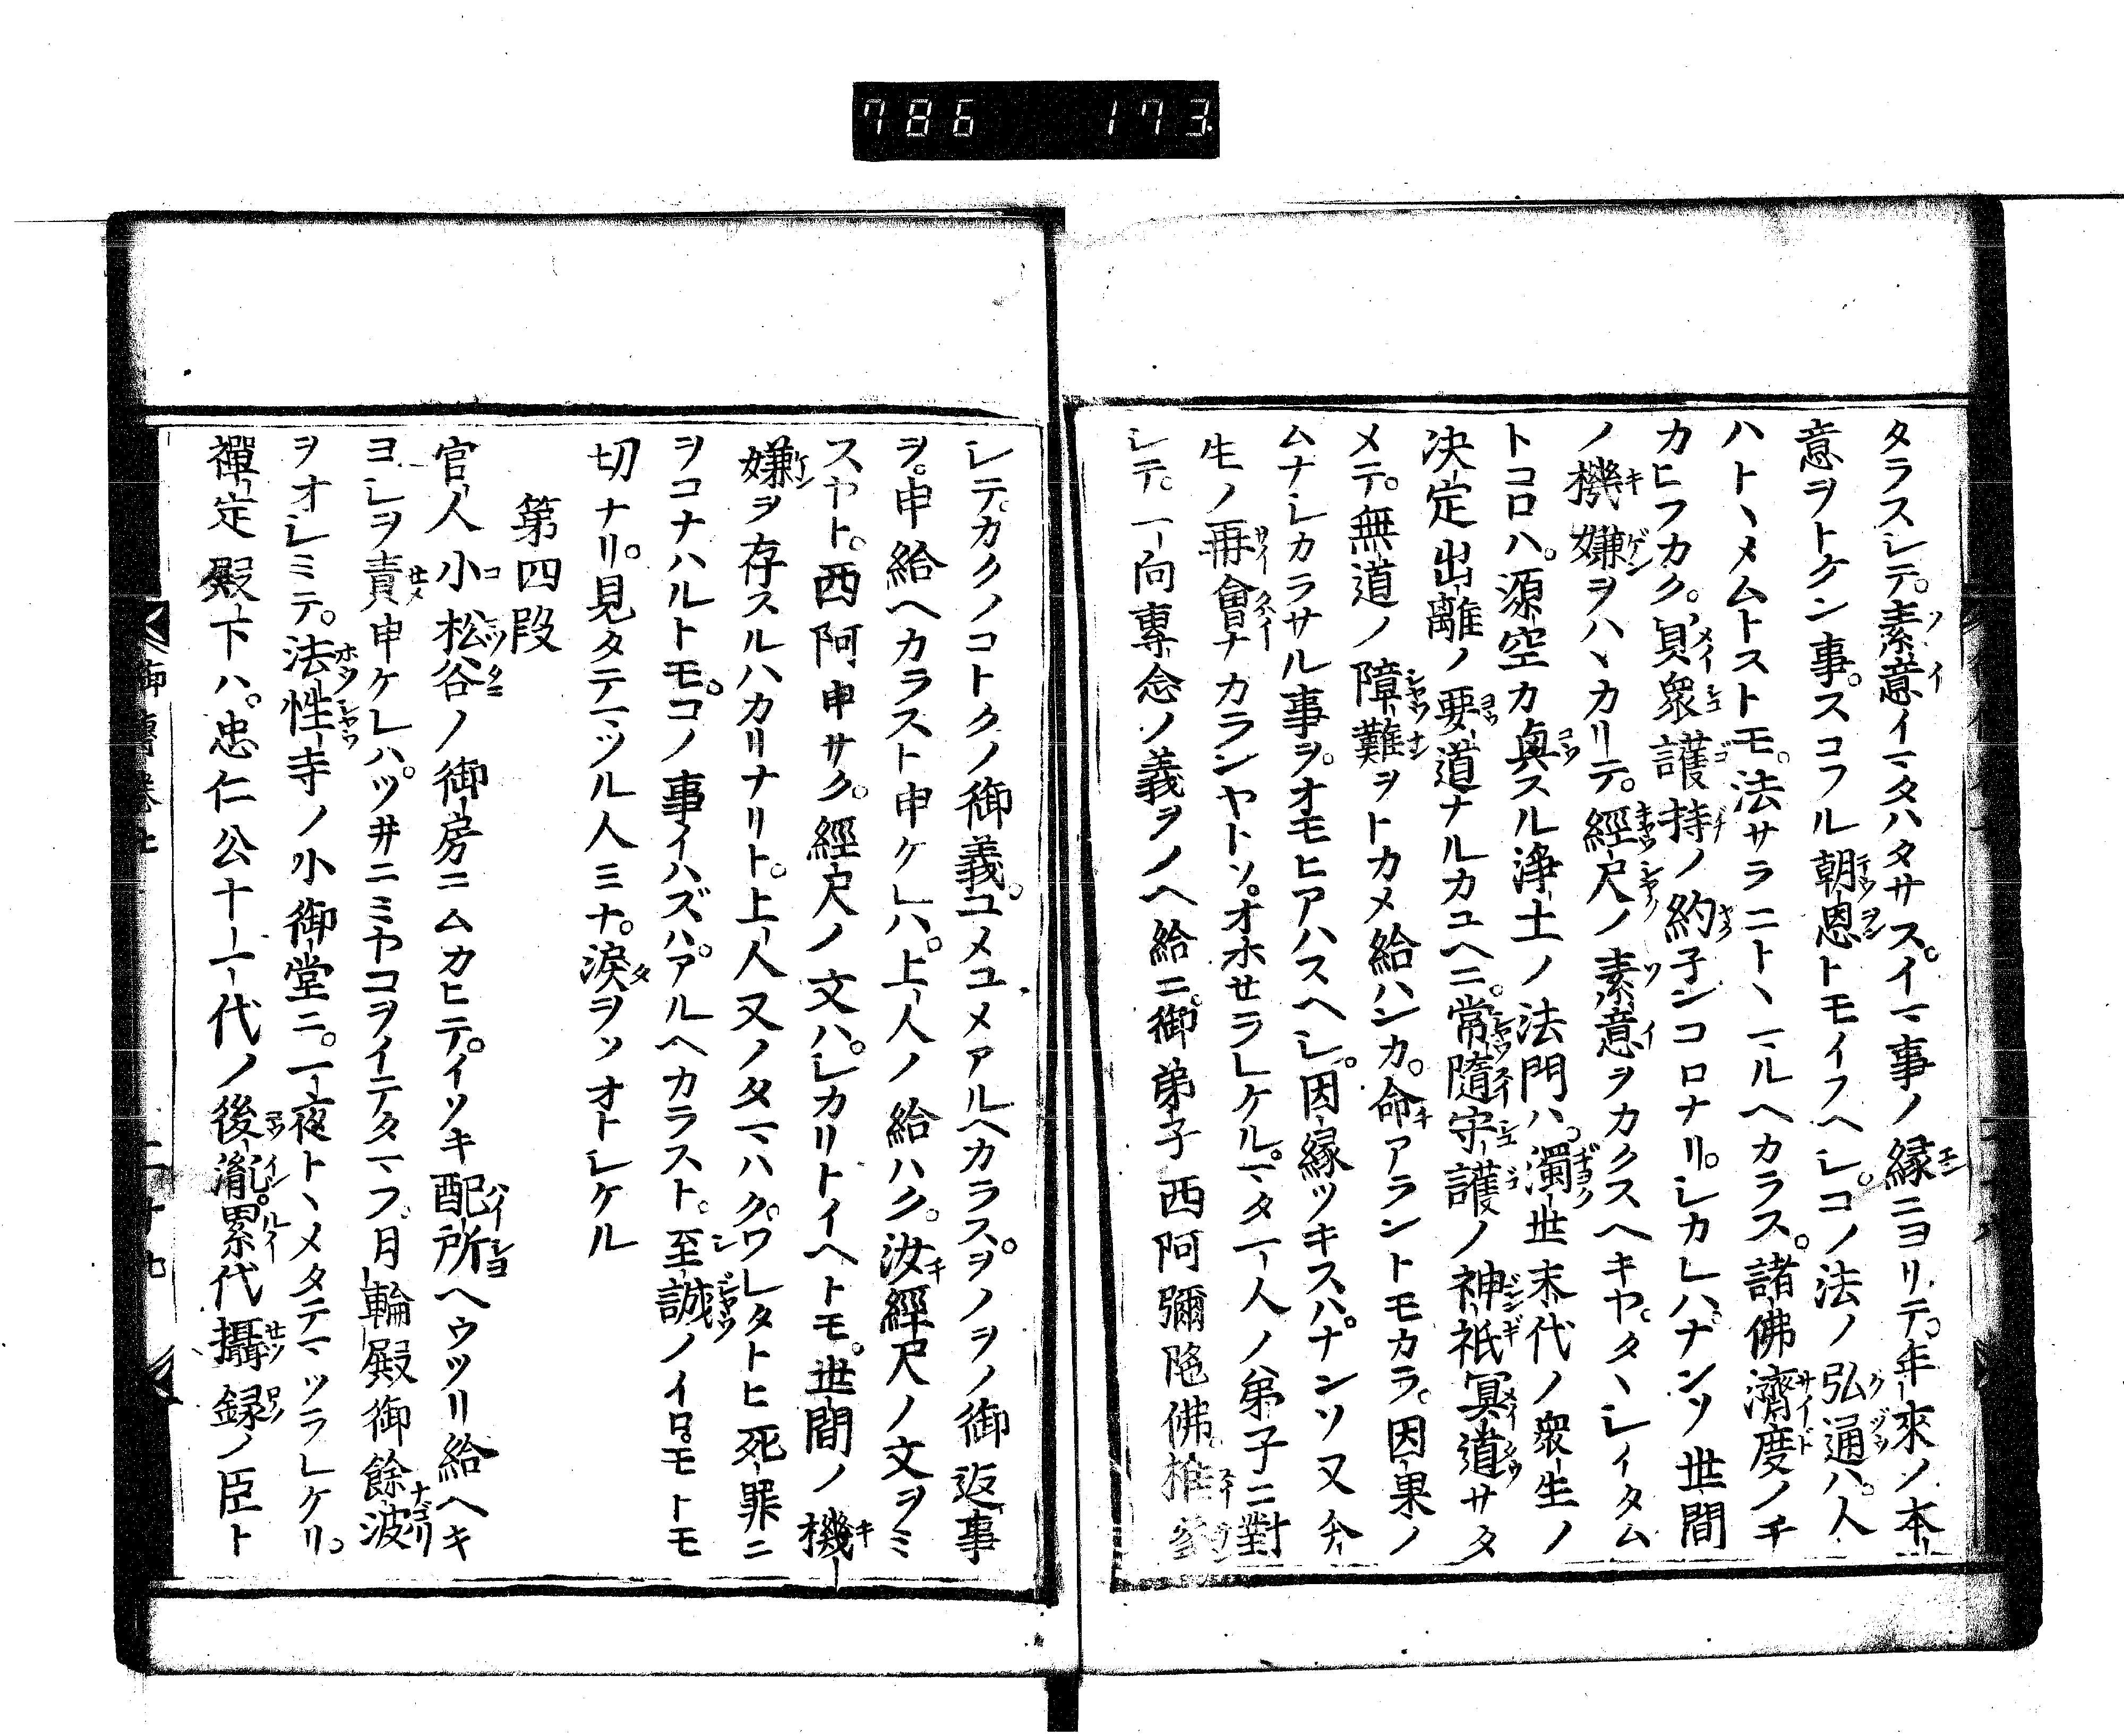 786 173
タラスシテ。素意イマタハタサス。イマ事ノ縁ニヨリテ。年來ノ本
意ヲトケン事。スコフル朝恩トモイフヘシ。コノ法ノ弘通ハ。人
ハトヽメムトストモ。法サラニトヽマルヘカラス。諸佛濟度ノチ
カヒフカク。冥衆護持ノ約子ンコロナリ。シカレハ。ナンソ世間
ノ機嫌ヲハヽカリテ。經尺ノ素意ヲカクスヘキヤ。タヽシイタム
トコロハ。源空カ興スル淨土ノ法門ハ。濁世末代ノ衆生ノ
決定出離ノ要道ナルカユヘニ。常隨守護ノ神祇冥道サタ
メテ。無道ノ障難ヲトカメ給ハンカ。命アラントモカラ。因果ノ
ムナシカラサル事ヲ。オモヒアハスヘシ。因縁ツキスハ。ナンソ又今
生ノ再會ナカランヤトソ。オホセラレケル。マタ一人ノ弟子ニ對
シテ。一向專念ノ義ヲノヘ給ニ。御弟子西阿彌陀佛。推參
シテ。カクノコトクノ御義。ユメユメアルヘカラス。ヲノヲノ御返事
ヲ。申給ヘカラスト申ケレハ。上人ノ給ハク。汝經尺ノ文ヲミ
スヤト。西阿申サク。經尺ノ文ハ。シカリトイヘトモ。世間ノ機
嫌ヲ存スルハカリナリト。上人又ノタマハク。ワレタトヒ死罪ニ
ヲコナハルトモ。コノ事イハズハ。アルヘカラスト。至誠ノイロ。モトモ
切ナリ。見タテマツル人ミナ。涙ヲソオトシケル
第四段
官人小松谷ノ御房ニムカヒテ。イソキ配所ヘウツリ給ヘキ
ヨシヲ責申ケレハ。ツ井ニミヤコヲイテタマフ。月輪殿御餘波
ヲオシミテ。法性寺ノ小御堂ニ。一夜トヽメタテマツラレケリ。
禪定殿下ハ。忠仁公十一代ノ後胤。累代攝録ノ臣ト